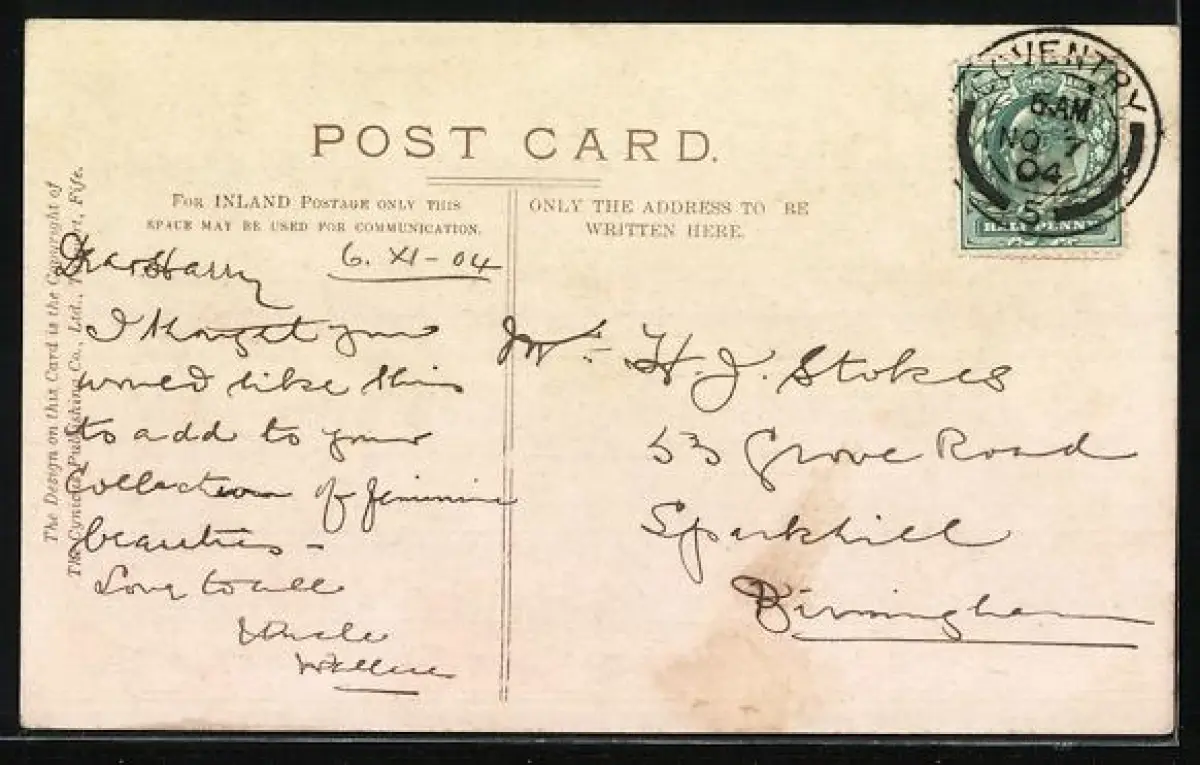 COVENTRY
5 AM
NO 7
04
5
HALFPENNY
POST CARD.
FOR INLAND POSTAGE ONLY THIS
SPACE MAY BE USED FOR COMMUNICATION.
ONLY THE ADDRESS TO BE
WRITTEN HERE.
The Design on this Card is the Copyright of
The Cynicus Publishing Co., Ltd., Fife.
Dear Harry
6. XI - 04
I thought you
would like this
to add to your
collection of feminine
beauties -
Love to all
Uncle
Mr. H. J. Stokes
53 Grove Road
Sparkhill
Birmingham